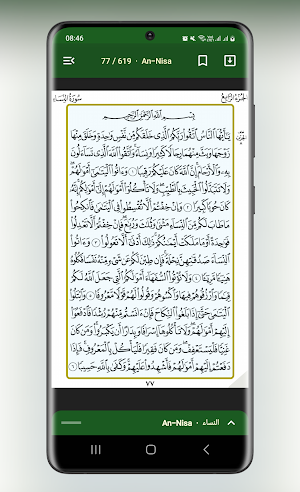 08:46
77 / 619 · An-Nisa
الجزء الرابع
سورة النساء
بِسْمِ ٱللَّهِ ٱلرَّحْمَٰنِ ٱلرَّحِيمِ
يَٰٓأَيُّهَا ٱلنَّاسُ ٱتَّقُوا۟ رَبَّكُمُ ٱلَّذِى خَلَقَكُم مِّن نَّفْسٍ وَٰحِدَةٍ وَخَلَقَ مِنْهَا
زَوْجَهَا وَبَثَّ مِنْهُمَا رِجَالًا كَثِيرًا وَنِسَآءً وَٱتَّقُوا۟ ٱللَّهَ ٱلَّذِى تَسَآءَلُونَ
بِهِۦ وَٱلْأَرْحَامَ إِنَّ ٱللَّهَ كَانَ عَلَيْكُمْ رَقِيبًا ١ وَءَاتُوا۟ ٱلْيَتَٰمَىٰٓ أَمْوَٰلَهُمْ
وَلَا تَتَبَدَّلُوا۟ ٱلْخَبِيثَ بِٱلطَّيِّبِ وَلَا تَأْكُلُوٓا۟ أَمْوَٰلَهُمْ إِلَىٰٓ أَمْوَٰلِكُمْ إِنَّهُۥ
كَانَ حُوبًا كَبِيرًا ٢ وَإِنْ خِفْتُمْ أَلَّا تُقْسِطُوا۟ فِى ٱلْيَتَٰمَىٰ فَٱنكِحُوا۟
مَا طَابَ لَكُم مِّنَ ٱلنِّسَآءِ مَثْنَىٰ وَثُلَٰثَ وَرُبَٰعَ فَإِنْ خِفْتُمْ أَلَّا تَعْدِلُوا۟
فَوَٰحِدَةً أَوْ مَا مَلَكَتْ أَيْمَٰنُكُمْ ذَٰلِكَ أَدْنَىٰٓ أَلَّا تَعُولُوا۟ ٣ وَءَاتُوا۟
ٱلنِّسَآءَ صَدُقَٰتِهِنَّ نِحْلَةً فَإِن طِبْنَ لَكُمْ عَن شَىْءٍ مِّنْهُ نَفْسًا فَكُلُوهُ
هَنِيٓـًٔا مَّرِيٓـًٔا ٤ وَلَا تُؤْتُوا۟ ٱلسُّفَهَآءَ أَمْوَٰلَكُمُ ٱلَّتِى جَعَلَ ٱللَّهُ لَكُمْ
قِيَٰمًا وَٱرْزُقُوهُمْ فِيهَا وَٱكْسُوهُمْ وَقُولُوا۟ لَهُمْ قَوْلًا مَّعْرُوفًا ٥ وَٱبْتَلُوا۟
ٱلْيَتَٰمَىٰ حَتَّىٰٓ إِذَا بَلَغُوا۟ ٱلنِّكَاحَ فَإِنْ ءَانَسْتُم مِّنْهُمْ رُشْدًا فَٱدْفَعُوٓا۟
إِلَيْهِمْ أَمْوَٰلَهُمْ وَلَا تَأْكُلُوهَآ إِسْرَافًا وَبِدَارًا أَن يَكْبَرُوا۟ وَمَن كَانَ
غَنِيًّا فَلْيَسْتَعْفِفْ وَمَن كَانَ فَقِيرًا فَلْيَأْكُلْ بِٱلْمَعْرُوفِ فَإِذَا
دَفَعْتُمْ إِلَيْهِمْ أَمْوَٰلَهُمْ فَأَشْهِدُوا۟ عَلَيْهِمْ وَكَفَىٰ بِٱللَّهِ حَسِيبًا ٦
٧٧
An-Nisa · النساء